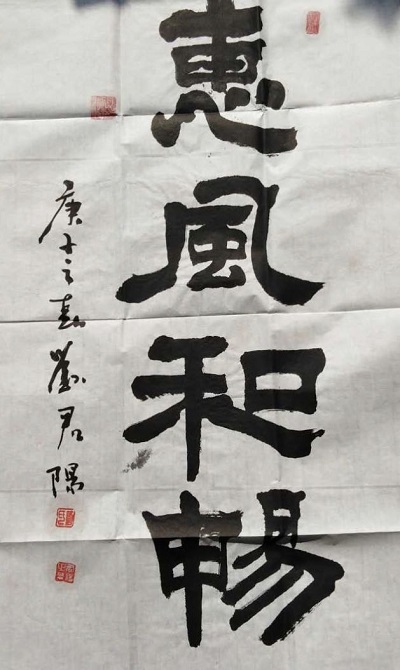 惠風和暢
庚子之春劉君